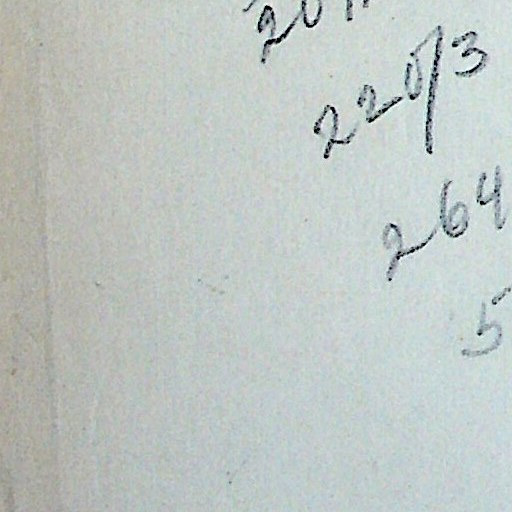 220/3
264
5